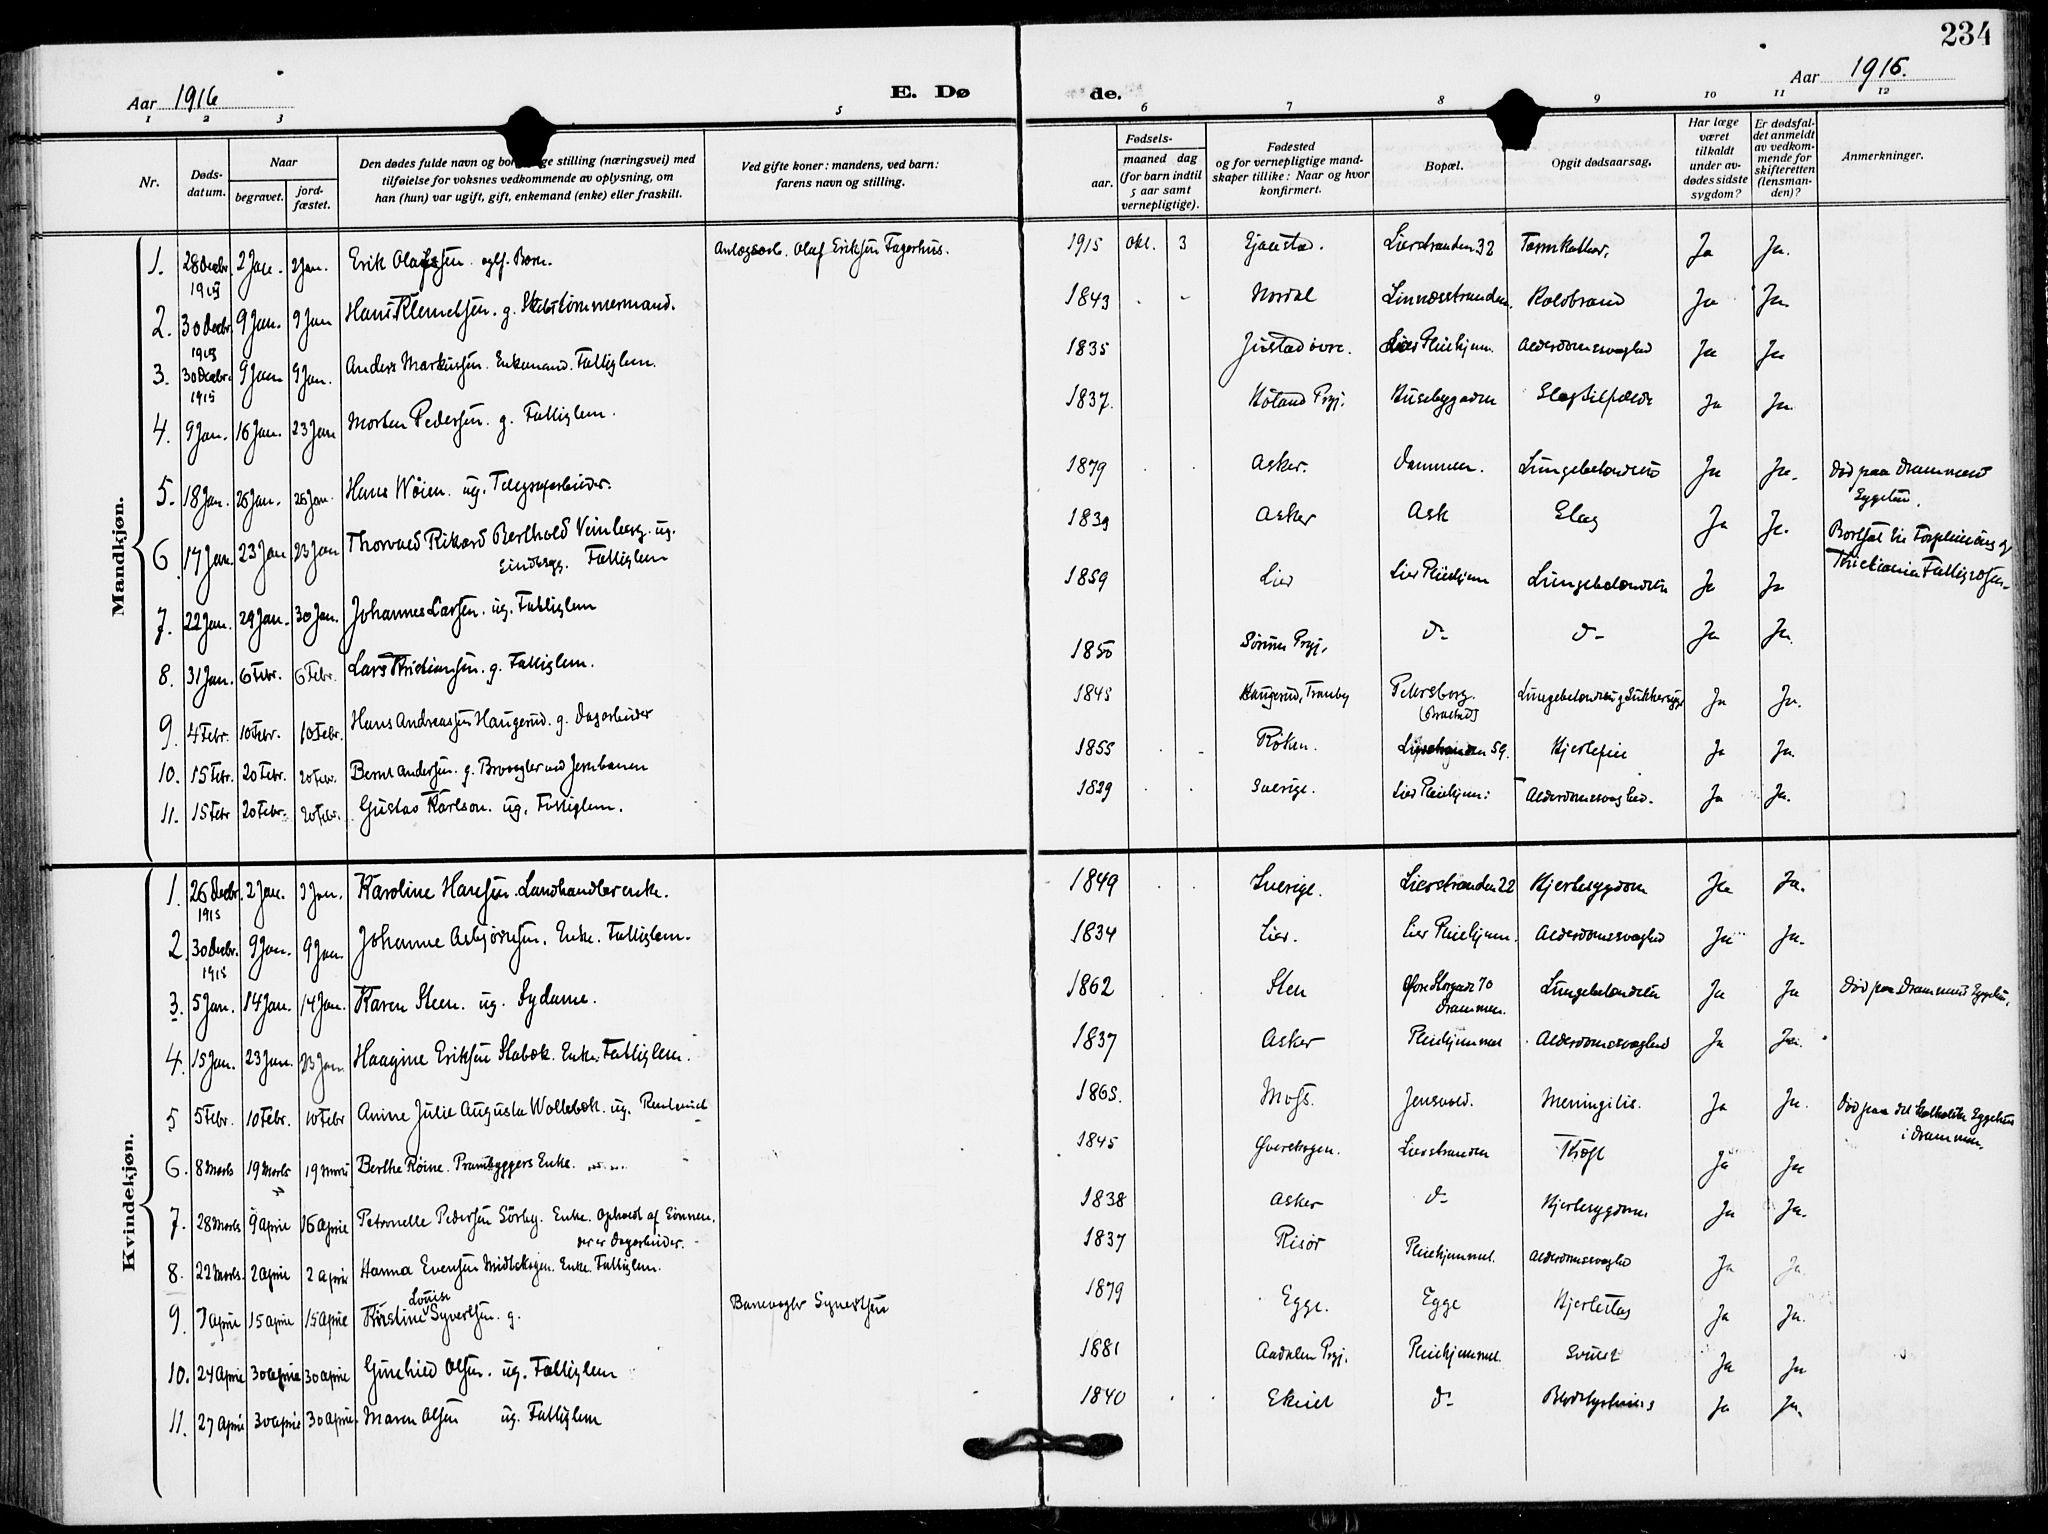 234
Aar 1916
E. Dø
de.
Aar 1916.
1 2 3 5 6 7 8 9 10 11 12
Nr.
Døds-
datum.
Naar
begravet.
jord-
fæstet.
Den dødes fulde navn og stilling (næringsvei) med
tilføielse for voksnes vedkommende av oplysning, om
han (hun) var ugift, gift, enkemand (enke) eller fraskilt.
Ved gifte koner: mandens, ved barn:
farens navn og stilling.
Fødsels-
aar.
maaned dag
(for barn indtil
5 aar samt
vernepligtige).
Fødested
og for vernepligtige mand-
skaper tillike: Naar og hvor
konfirmert.
Bopæl.
Opgit dødsaarsag.
Har læge
været
tilkaldt
under av-
dødes sidste
sygdom?
Er dødsfal-
det anmeldt
av vedkom-
mende for
skifteretten
(lensman-
den)?
Anmerkninger.
Mandkjøn.
1. 28 Decbr. 1915 2 Jan. 2 Jan. Erik Olafsen. Barn. Olaf Eriksen Fagerhus. 1915 Okt. 3 Lierstranden 32 Tarmkathar. Ja Ja.
2. 30 Decbr. 1915 9 Jan. 9 Jan Hans Klemetsen. g. Skibstømmermand. 1843 Linnesstranden. Koldbrand Ja Ja.
3. 30 Decbr. 1915 9 Jan 9 Jan. Anders Markussen. Enkemand. Fattiglem. 1835 Justad øvre. Lier Pleiehjem. Alderdomssvaghed Ja Ja
4. 9 Jan. 16 Jan. 23 Jan Morten Pedersen. g. Fattiglem. 1837. Høland Prgj. Husebygaden Slagtilfælde Ja Ja.
5. 18 Jan. 26 Jan. 26 Jan. Hans Wøien. ug. Telegrafarbeider. 1879 Asker. Dammen. Lungebetændelse Ja Ja. Død paa Drammens
Sygehus.
6. 17 Jan. 23 Jan 23 Jan Thorvald Rikard Berthold Veinberg. ug.
Fattiglem 1839 Asker Ask Slag Ja Ja. Bortsat til Forpleining af
Kristiania Fattigvæsen.
7. 22 Jan. 29 Jan. 30 Jan. Johannes Larsen. ug. Fattiglem 1859 Lier Lier Pleiehjem Lungebetændelse Ja Ja
8. 31 Jan. 6 Febr. 6 Febr. Lars Kristiansen. g. Fattiglem. 1850 Sørum Prgj. d- d- Ja Ja.
9. 4 Febr. 10 Febr. 10 Febr. Hans Andreassen Haugerud. g. Dagarbeider 1845 Haugerud, Tranby Petersborg.
Lungebetændelse g Sukkersyge Ja Ja.
10. 15 Febr. 20 Febr. 20 Febr. Bernt Andersen. g. Brovogter ved Jernbanen 1855 Røken. Lierstranden 59. Hjertefeil Ja Ja.
11. 15 Febr 20 Febr. 20 Febr. Gustav Karlson. ug. Fattiglem. 1829 Sverige. Lier Pleiehjem. Alderdomssvaghed. Ja Ja.
Kvindekjøn.
1. 26 Decbr. 1915 2 Jan. 2 Jan. Karoline Hansen. Landhandlerenke. 1849 Sverige. Lierstranden 22 Hjertesygdom Ja Ja.
2. 30 Decbr. 1915 9 Jan. 9 Jan. Johanne Asbjørnsen. Enke. Fattiglem. 1834 Lier. Lier Pleiehjem. Alderdomssvaghed Ja Ja.
3. 5 Jan. 14 Jan. 14 Jan. Karen Steen. ug. Sydame. 1862 Sten Øvre Storgade 70
Drammen. Lungebetændelse Ja Ja Død paa Drammens Sygehus.
4. 15 Jan. 23 Jan. 23 Jan. Haagine Eriksen Stabæk. Enke. Fattiglem. 1837 Asker Pleiehjemmet Alderdomssvaghed Ja Ja.
5 5 Febr. 10 Febr. 10 Febr Anine Julie Augusta Wollebæk. ug. 1865. Moss. Jensvold. Meningitis. Ja Ja. Død paa det katholske Sygehus
i Drammen.
6. 8 Marts 19 Marts 19 Marts Berthe Røine. Prambyggers Enke. 1845 Øverskogen. Lierstranden Kræft Ja Ja
7. 28 Marts 9 April 16 April Petronelle Pedersen Sørby. Enke. Ophold af Sønnen,
der er Dagarbeider. 1838 Asker d- Hjertesygdom Ja Ja.
8. 22 Marts. 2 April 2 April Hanna Evensen Midtskogen. Enke. Fattiglem. 1837 Risør Pleiehjemmet. Alderdomssvaghed Ja Ja.
9. 7 April 15 April 15 April Kristine Louise Syvertsen. g. Banevogter Syvertsen 1879 Egge. Egge Hjerteslag Ja Ja.
10. 24 April 30 April 30 April Gunhild Olsen. ug. Fattiglem 1881 Aadalen Prgj. Pleiehjemmet. Svulst Ja Ja
11. 27 April 30 April 30 April. Maren Olsen ug. Fattiglem 1840 Ekeset d- Ja Ja.